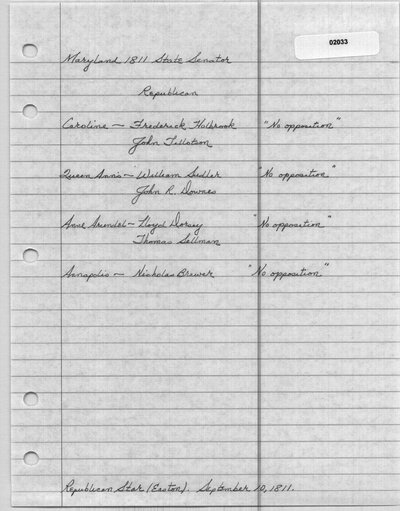 02033
Maryland 1811 State Senator
Republican
Caroline — Frederick Holbrook "No opposition"
John Tillotson
Queen Ann's — William Sudler "No opposition"
John R. Downes
Anne Arundel — Lloyd Dorsey "No opposition"
Thomas Sellman
Annapolis — Nicholas Brewer "No opposition"
Republican Star (Easton). September 10, 1811.